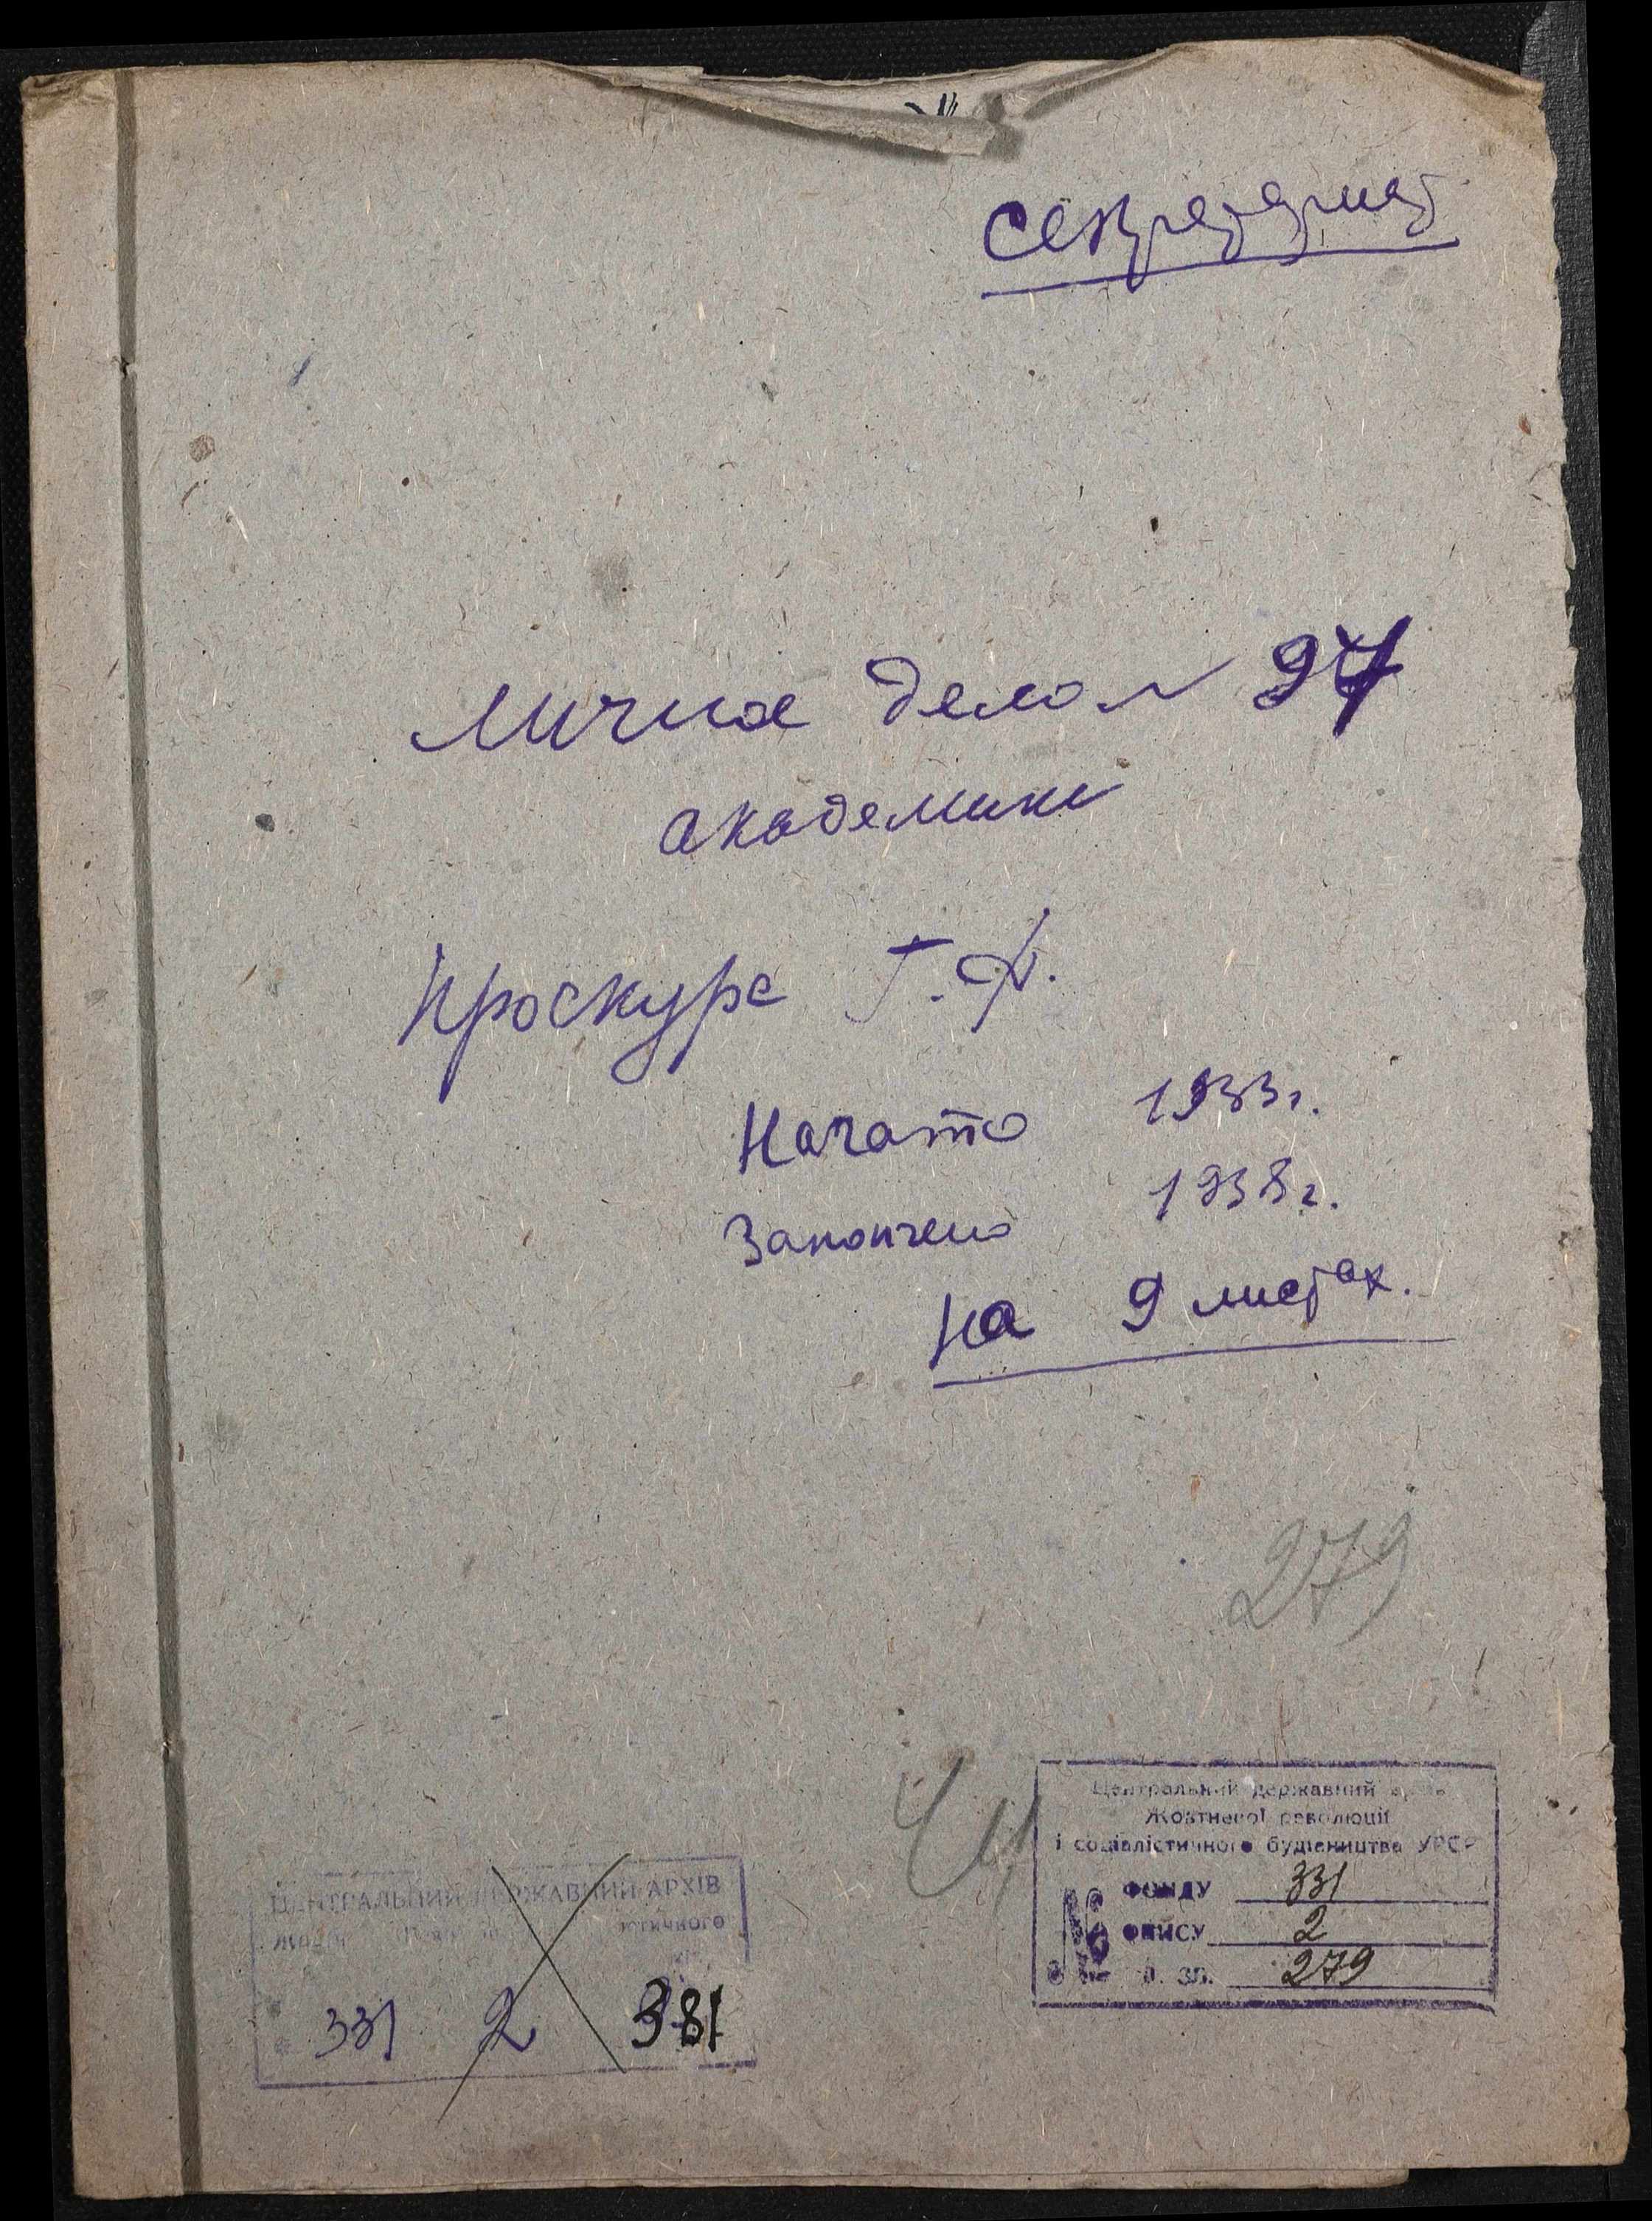 Секретариат
Личное дело N 97
академика
Проскура Г.Ф.
Начато 1933г.
Закончено 1938г.
на 9 листах.
279
Центральний державний архів
Жовтневої революції
і соціалістичного будівництва УРСР
№ ФОНДУ 331
ОПИСУ 2
од. зб. 279
ЦЕНТРАЛЬНИЙ ДЕРЖАВНИЙ АРХІВ
331 2 381